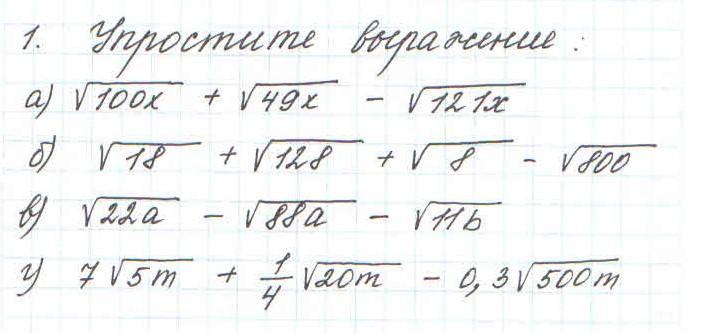 1. Упростите выражение:
а) √100x + √49x − √121x
б) √18 + √128 + √8 − √800
в) √22a − √88a − √11b
г) 7√5m + 1/4 √20m − 0,3√500m